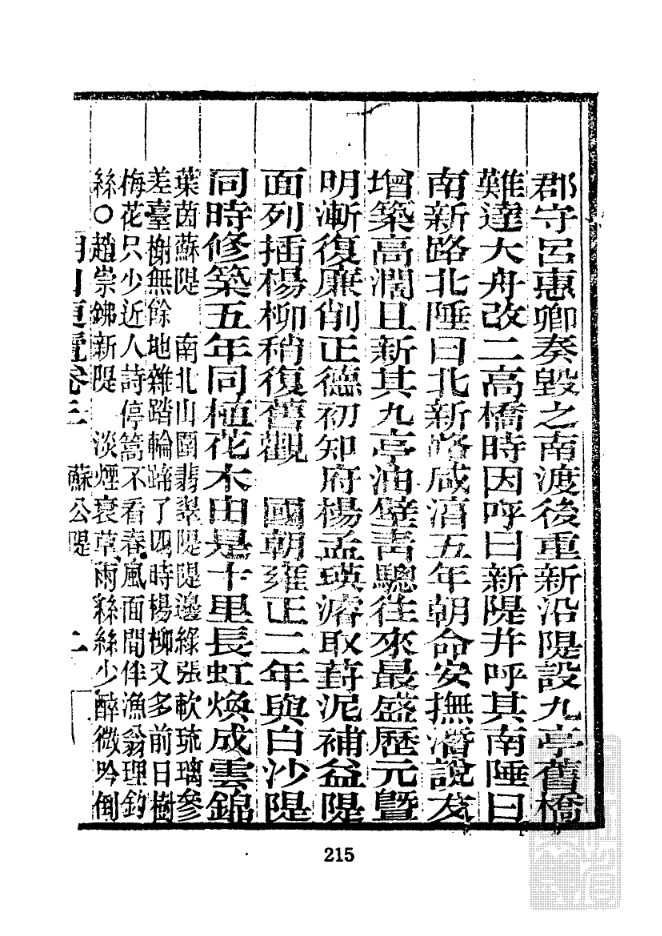 郡守呂惠卿奏毀之南渡後重新沿隄設九亭舊橋
難達大舟改二高橋時因呼曰新隄并呼其南陲曰
南新路北陲曰北新路咸淳五年朝命安撫潛說友
增築高濶且新其九亭油壁青驄往來最盛歷元曁
明漸復廉削正德初知府楊孟瑛濬取葑泥補益隄
面列插楊柳稍復舊觀　國朝雍正二年與白沙隄
同時修築五年同植花木由是十里長虹煥成雲錦
葉茵蘇隄　南北山圍翡翠隄隄邊綠張軟琉璃參
差臺榭無餘地雜踏輪蹄了四時楊柳又多前日樹
梅花只少近人詩停篙不看春風面閒伴漁翁理釣
絲○趙崇鉘新隄　淡煙衰草雨絲絲少醉微吟倒
湖山便覽卷三　蘇公隄　二
215